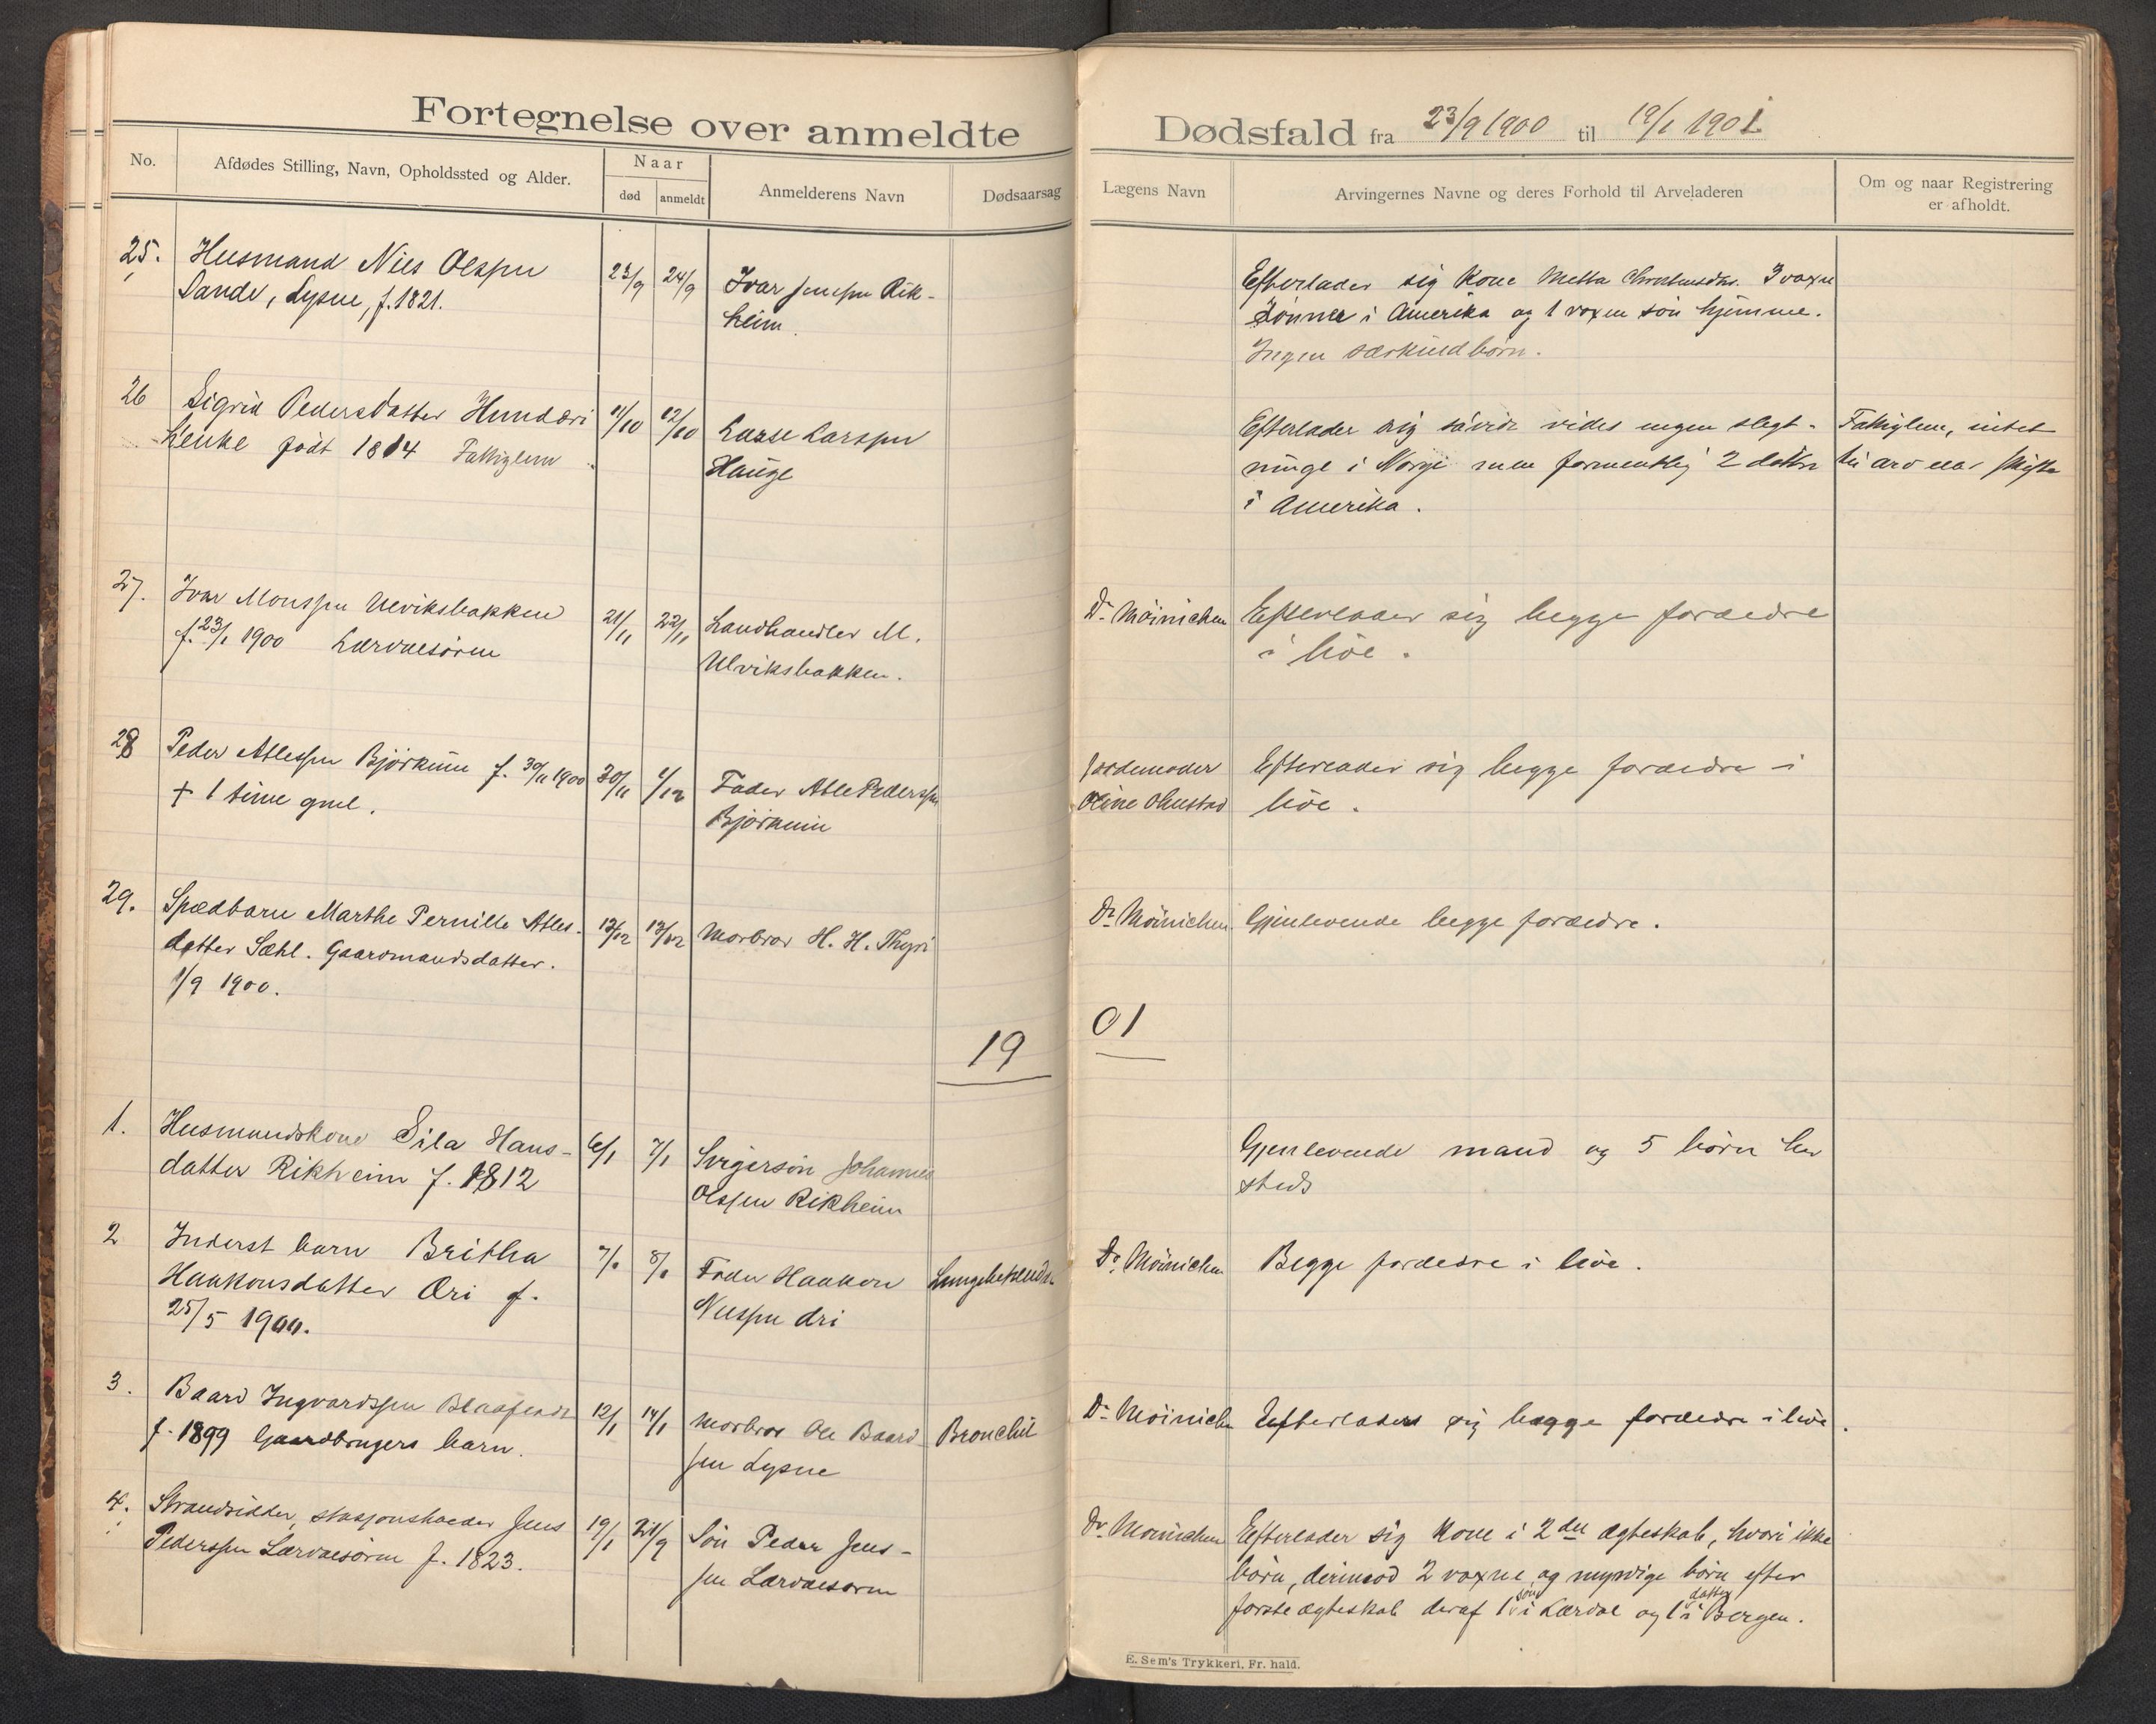 Fortegnelse over anmeldte
Dødsfald fra 23/9 1900 til 19/1 1901.
No.
Afdødes Stilling, Navn, Opholdssted og Alder.
Naar
død
anmeldt
Anmelderens Navn
Dødsaarsag
Lægens Navn
Arvingernes Navne og deres Forhold til Arveladeren
Om og naar Registrering
er afholdt.
25.
Husmand Nils Olssen
Sande, Lysne, f. 1821.
23/9
24/9
Ivar Jenssen Rik-
heim.
Efterlader sig kone Metta 3 voxne
sönner i Amerika og 1 voxen sön hjemme.
Ingen særkuldbörn.
26
Sigrid Pedersdatter Hunderi
födt 1814 Fattiglem
11/10
12/10
Lasse Larssen
Hauge
Efterlader sig såvidt vides ingen slegt-
ninge i Norge men formentlig 2 døttre
i Amerika.
Fattiglem, intet
til arv eller skifte
27.
Ivar Monssen Ulviksbakken
f. 23/1 1900 Lærdalsören
21/11
22/11
Landhandler M.
Ulviksbakken.
Dr. Möinichen
Efterlader sig begge forældre
i live.
28
Peder Atlessen Björkum f. 30/11 1900
+ 1 time gml.
30/11
1/12
Fader Atle Pederssen
Björkum
Jordemoder
Oline Ölnstad
Efterlader sig begge forældre i
live.
29.
Spædbarn Marthe Pernille Atles-
datter Sæhl. Gaardmandsdatter.
1/9 1900.
12/12
13/12
Morbror H. H. Thyri
Dr. Möinichen
Gjenlevende begge forældre.
19
01
1.
Husmandskone Sila Hans-
datter Rikheim f. 1812
6/1
7/1
Svigersön Johannes
Olssen Rikheim
Gjenlevende mand og 5 börn her
steds
2
Inderst barn Britha
Haakonsdatter Øri f.
25/5 1900.
7/1
8/1
Fader Haakon
Nilssen Øri
Dr. Möinichen
Begge forældre i live.
3.
Baard Ingvardssen
f. 1899 Gaardbrugers barn.
12/1
14/1
Morbror Ole Baard-
sen Lysne
Bronchit
Dr. Möinichen
Efterlader sig begge forældre i live.
4.
Strandsidder, stasjonsholder Jens
Pederssen Lærdalsören f. 1823.
19/1
21/9
Sön Peder Jens-
sen Lærdalsören
Dr. Möinichen
Efterlader sig kone i 2det ægteskab, hvori ikke
börn, derimod 2 voxne og myndige börn efter
förste ægteskab deraf 1 sön i Lærdal og 1 datter i Bergen.
E. Sem's Trykkeri, Fr. hald.